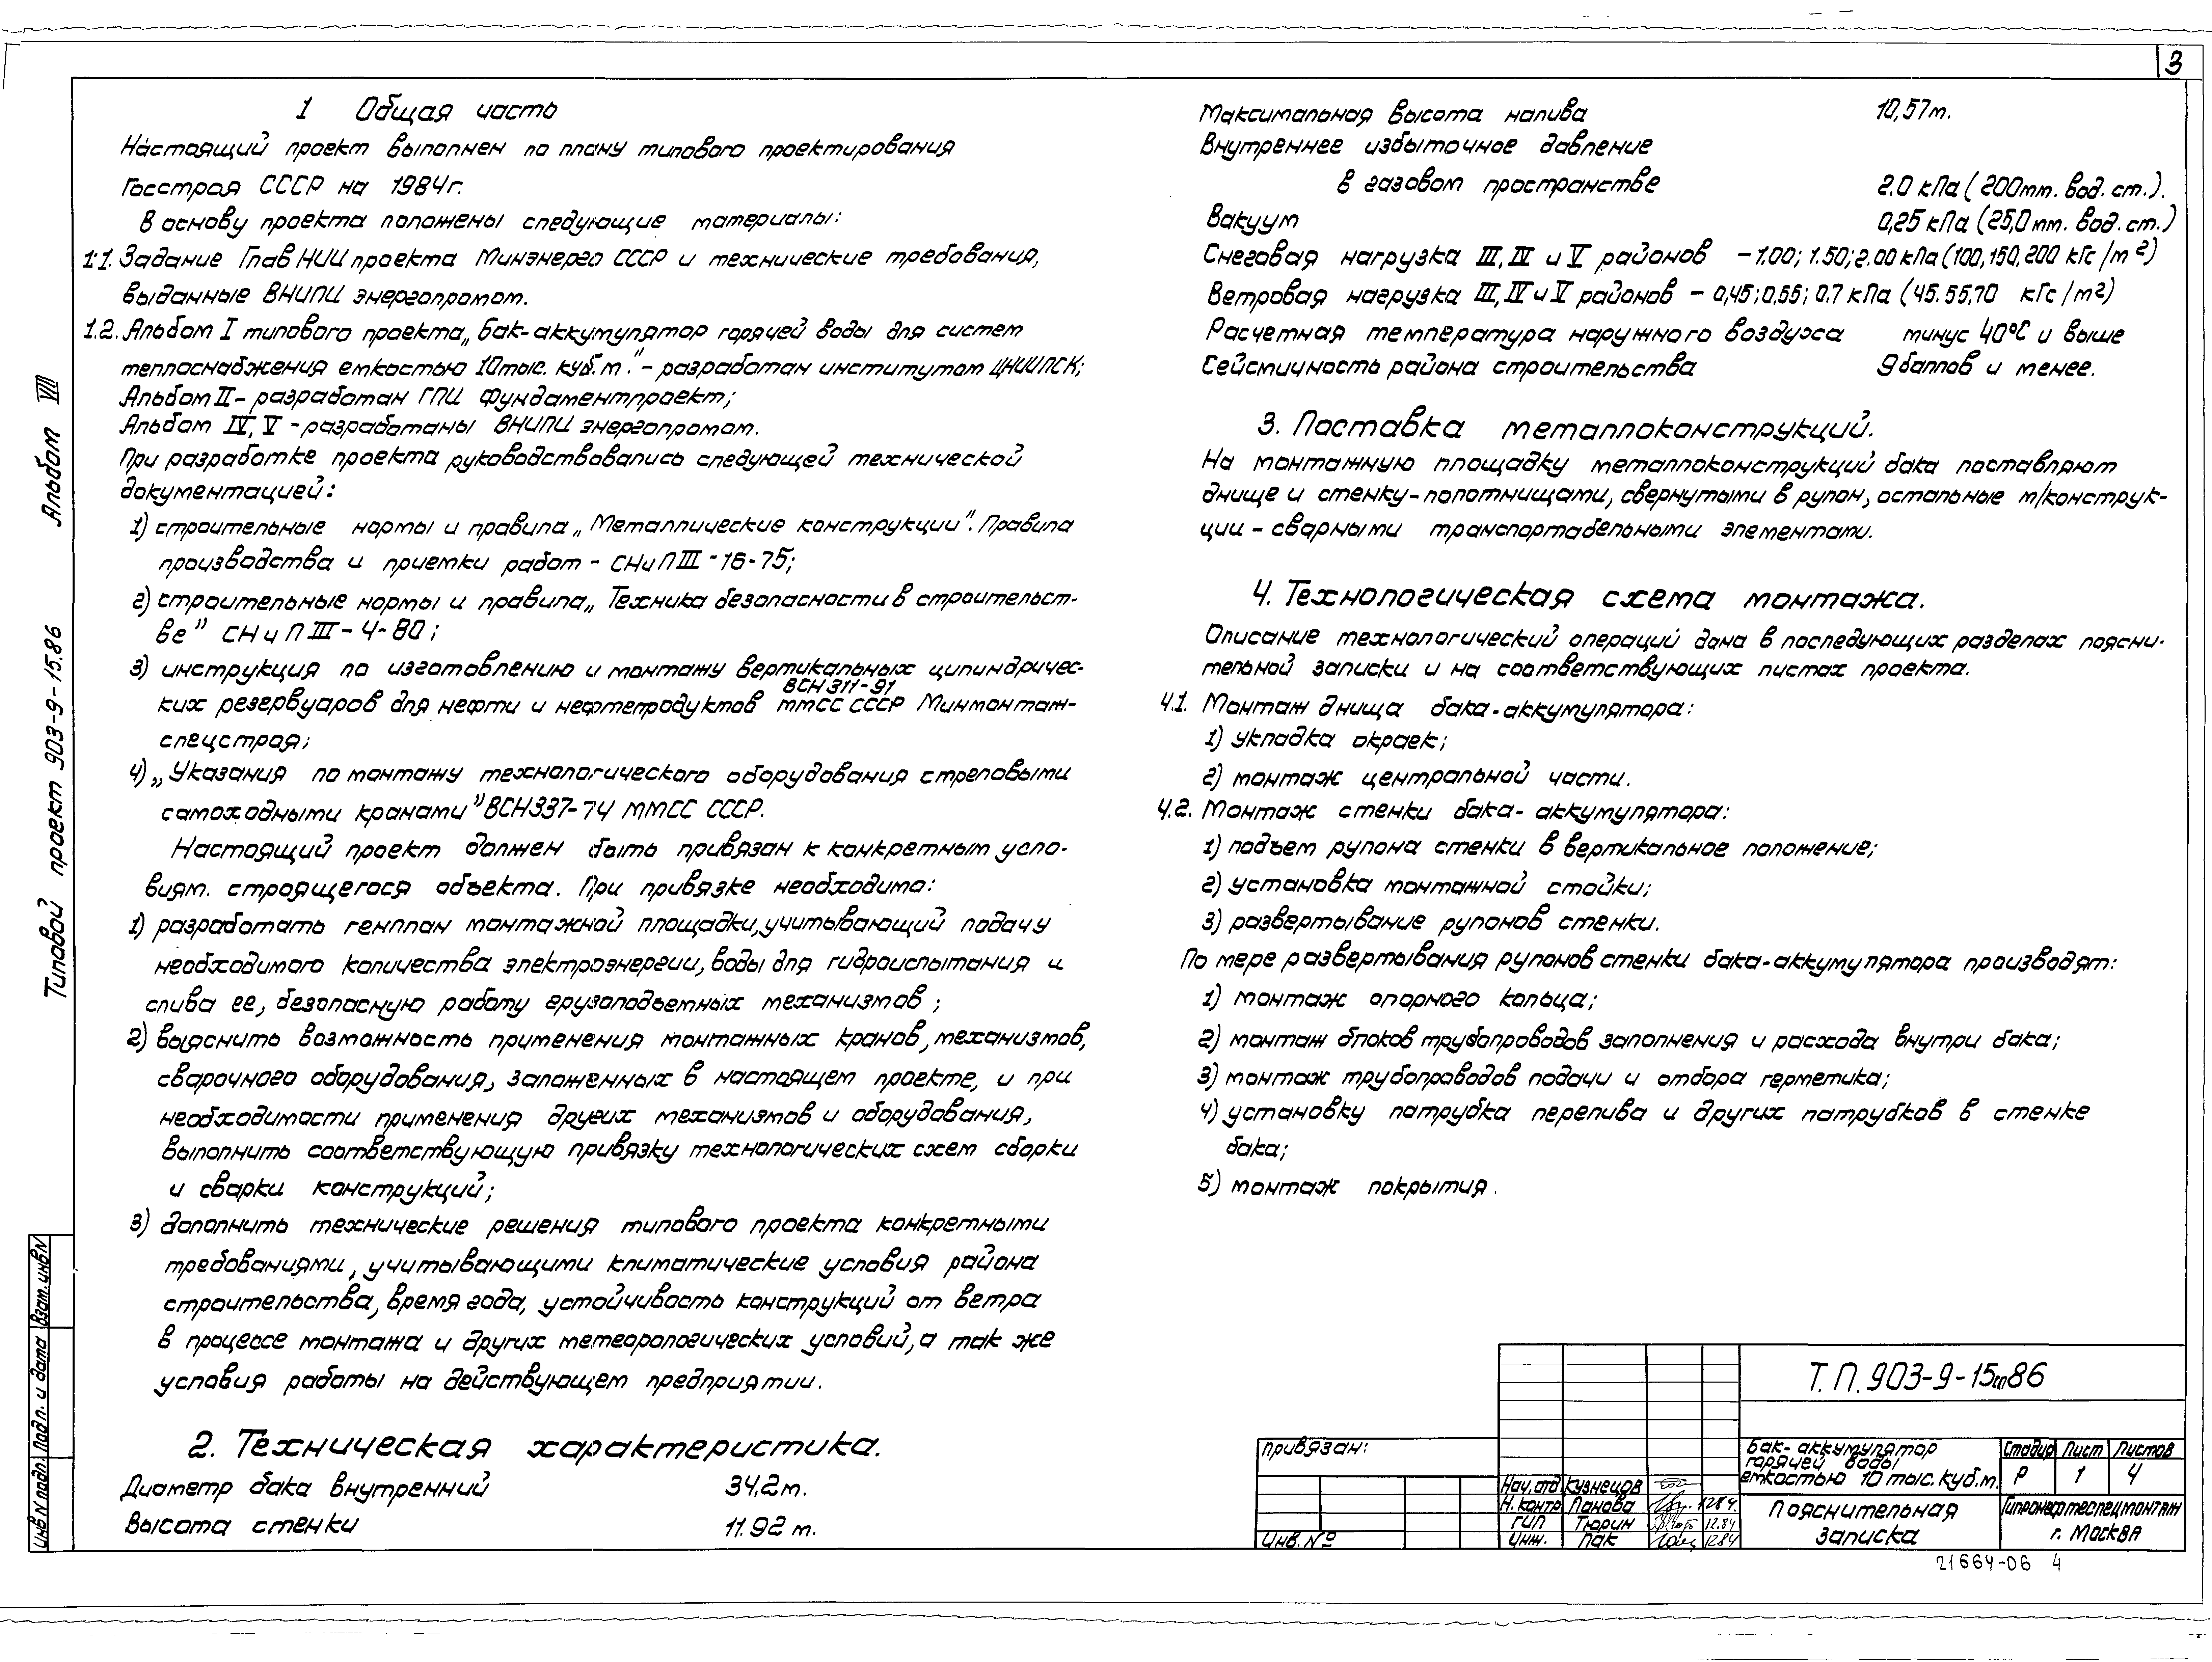 3
1 Общая часть
Настоящий проект выполнен по плану типового проектирования
Госстроя СССР на 1984г.
В основу проекта положены следующие материалы:
1.1. Задание ГлавНИИпроекта Минэнерго СССР и технические требования,
выданные ВНИПИ энергопромом.
1.2. Альбом I типового проекта „Бак-аккумулятор горячей воды для систем
теплоснабжения емкостью 10тыс. куб.м.” - разработан институтом ЦНИИПСК;
Альбом II - разработан ГПИ Фундаментпроект;
Альбом IV, V - разработаны ВНИПИ энергопромом.
При разработке проекта руководствовались следующей технической
документацией:
1) строительные нормы и правила „Металлические конструкции”. Правила
производства и приемки работ - СНиП III - 16-75;
2) строительные нормы и правила „Техника безопасности в строительст-
ве” СНиП III - 4-80;
3) инструкция по изготовлению и монтажу вертикальных цилиндричес-
ких резервуаров для нефти и нефтепродуктов ВСН 311-91 ММСС СССР Минмонтаж-
спецстроя;
4) „Указания по монтажу технологического оборудования стреловыми
самоходными кранами” ВСН337-74 ММСС СССР.
Настоящий проект должен быть привязан к конкретным усло-
виям. строящегося объекта. При привязке необходимо:
1) разработать генплан монтажной площадки, учитывающий подачу
необходимого количества электроэнергии, воды для гидроиспытания и
слива ее, безопасную работу грузоподъемных механизмов;
2) выяснить возможность применения монтажных кранов, механизмов,
сварочного оборудования, заложенных в настоящем проекте, и при
необходимости применения других механизмов и оборудования,
выполнить соответствующую привязку технологических схем сборки
и сварки конструкций;
3) дополнить технические решения типового проекта конкретными
требованиями, учитывающими климатические условия района
строительства, время года, устойчивость конструкций от ветра
в процессе монтажа и других метеорологических условий, а так же
условия работы на действующем предприятии.
2. Техническая характеристика.
Диаметр бака внутренний 34,2м.
Высота стенки 11.92 м.
Максимальная высота налива 10,57м.
Внутреннее избыточное давление
в газовом пространстве 2.0 кПа (200мм. вод. ст.).
Вакуум 0,25 кПа (25,0мм. вод. ст.)
Снеговая нагрузка III, IV и V районов - 1.00; 1.50; 2.00 кПа (100, 150, 200 кгс/м²)
Ветровая нагрузка III, IV и V районов - 0,45; 0,55; 0.7 кПа (45. 55, 70 кгс/м²)
Расчетная температура наружного воздуха минус 40°С и выше
Сейсмичность района строительства 9 баллов и менее.
3. Поставка металлоконструкций.
На монтажную площадку металлоконструкций бака поставляют
днище и стенку-полотнищами, свернутыми в рулон, остальные м/конструк-
ции - сварными транспортабельными элементами.
4. Технологическая схема монтажа.
Описание технологический операций дана в последующих разделах поясни-
тельной записки и на соответствующих листах проекта.
4.1. Монтаж днища бака-аккумулятора:
1) укладка окраек;
2) монтаж центральной части.
4.2. Монтаж стенки бака-аккумулятора:
1) подъем рулона стенки в вертикальное положение;
2) установка монтажной стойки;
3) развертывание рулонов стенки.
По мере развертывания рулонов стенки бака-аккумулятора производят:
1) монтаж опорного кольца;
2) монтаж блоков трубопроводов заполнения и расхода внутри бака;
3) монтаж трубопроводов подачи и отбора герметика;
4) установку патрубка перелива и других патрубков в стенке
бака;
5) монтаж покрытия.
Типовой проект 903-9-15.86 Альбом VIII
Инв N подл. Подп. и дата Взам. инв N
Т.П. 903-9-15 86
Привязан:
Инв. №
Нач. отд Кузнецов
Н. контр Панова 12.84.
ГИП Тюрин 12.84
Инж. Пак 1284
Бак-аккумулятор
горячей воды
емкостью 10 тыс. куб.м.
Стадия Лист Листов
Р 1 4
Пояснительная
записка
Гипронефтеспецмонтаж
г. Москва
21664-06 4